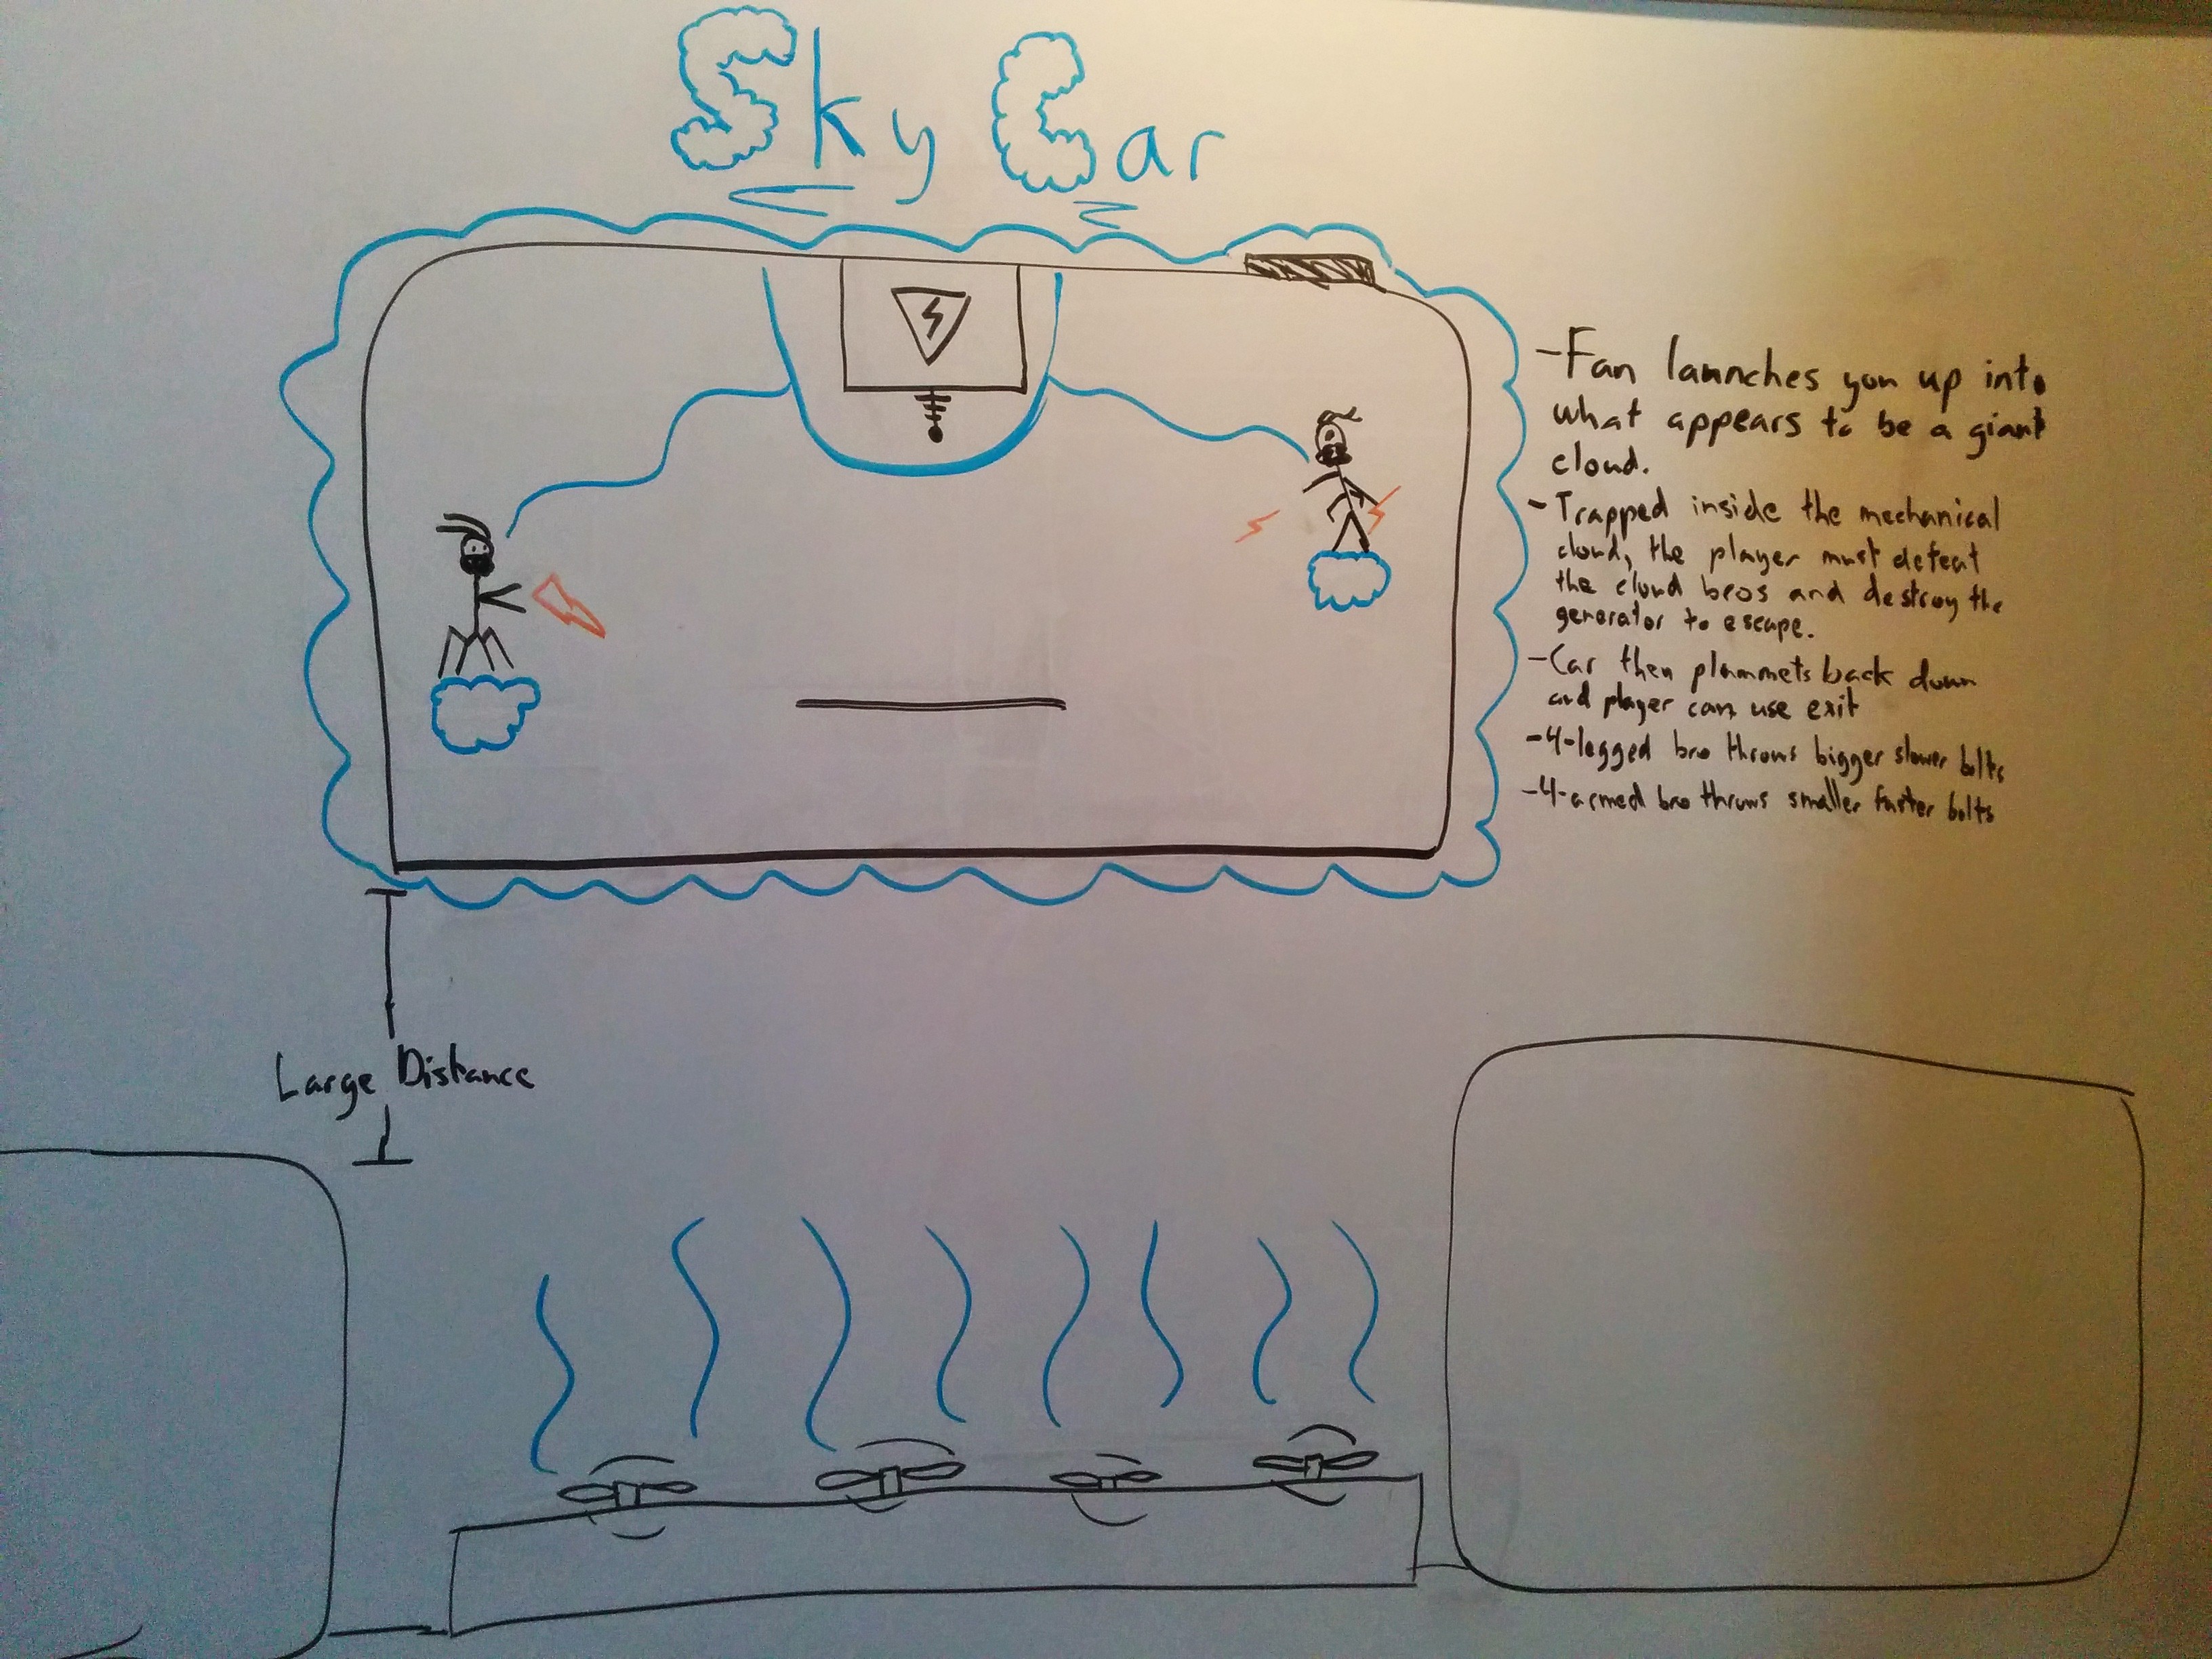 Sky Car
-Fan launches you up into
what appears to be a giant
cloud.
-Trapped inside the mechanical
cloud, the player must defeat
the cloud bros and destroy the
generator to escape.
-Car then plummets back down
and player can use exit
-4-legged bro throws bigger slower bolts
-4-armed bro throws smaller faster bolts
Large Distance